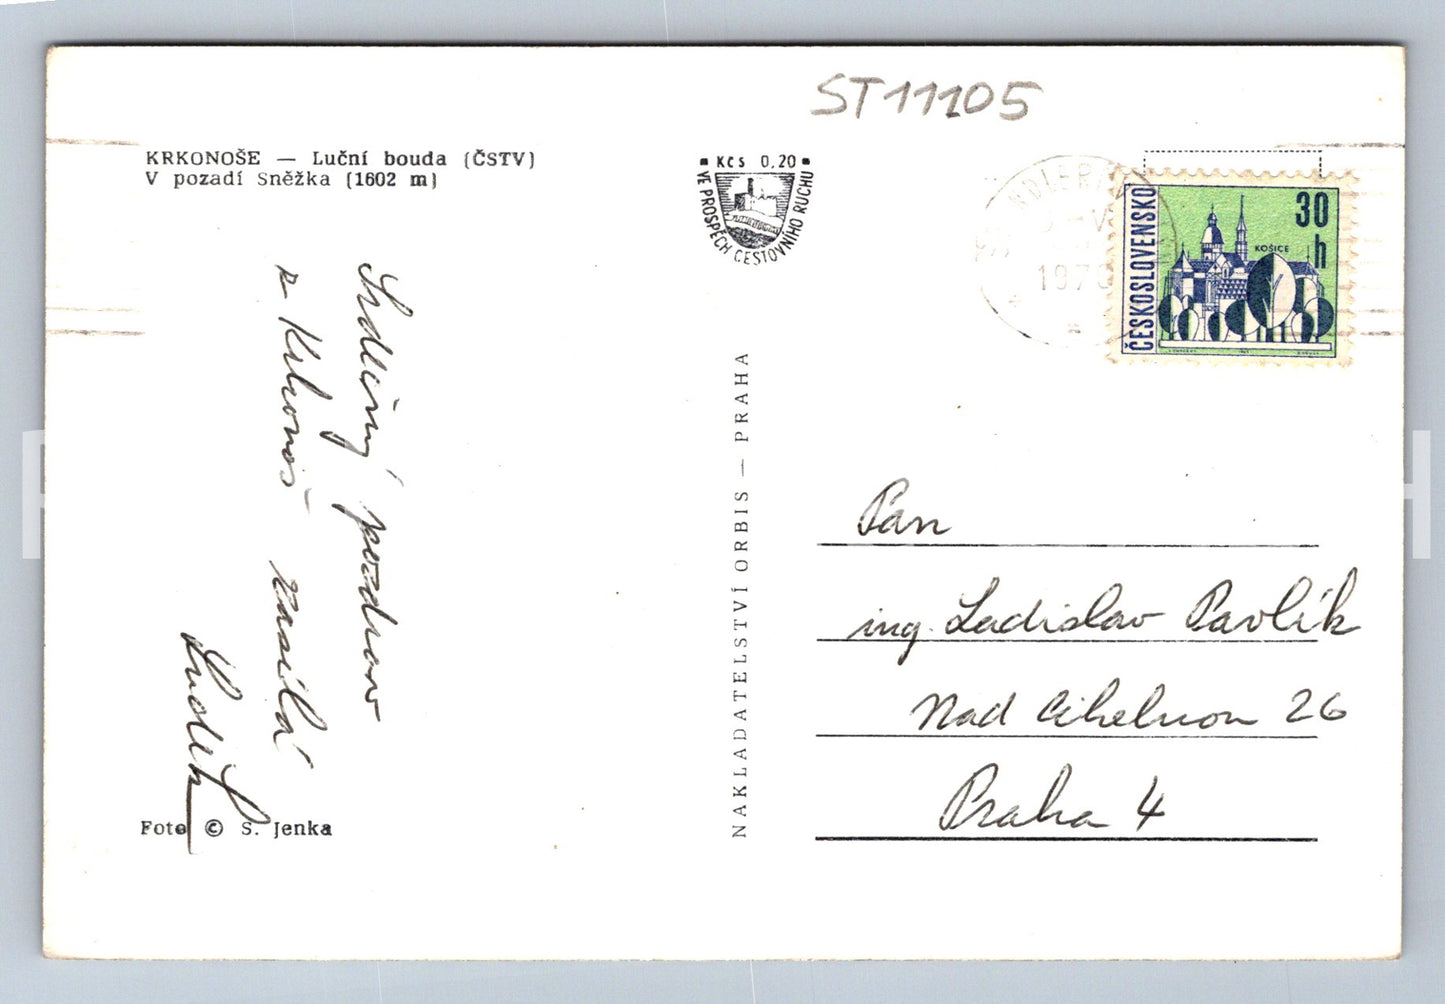 ST11105
KRKONOŠE — Luční bouda (ČSTV)
V pozadí Sněžka (1602 m)
Kčs 0,20
VE PROSPĚCH CESTOVNÍHO RUCHU
1970
ČESKOSLOVENSKO
30 h
KOŠICE
Srdečný pozdrav
z Krkonoš zasílá
Luděk
Foto © S. Jenka
NAKLADATELSTVÍ ORBIS — PRAHA
Pan
ing. Ladislav Pavlík
Nad cihelnou 26
Praha 4